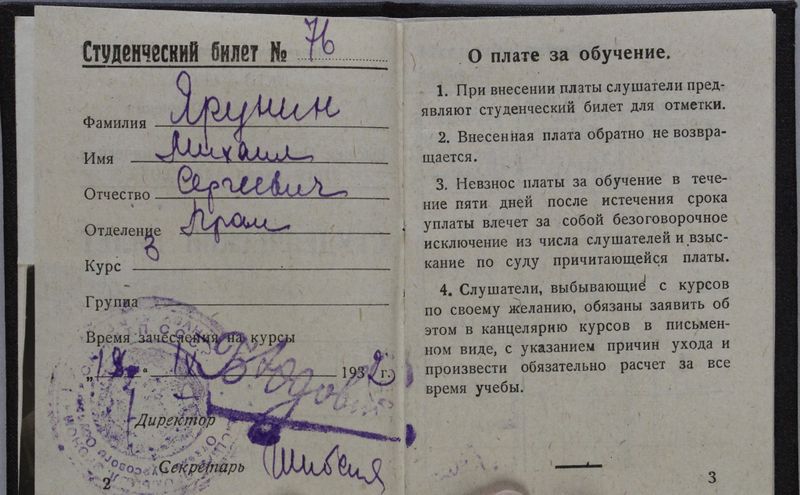 Студенческий билет № 76
Фамилия Ярунин
Имя Михаил
Отчество Сергеевич
Отделение Крат
Курс 3
Группа
Время зачесления на курсы
„12“ IX 1932 г.
Директор
Секретарь
2
О плате за обучение.
1. При внесении платы слушатели пред-
являют студенческий билет для отметки.
2. Внесенная плата обратно не возвра-
щается.
3. Невзнос платы за обучение в тече-
ние пяти дней после истечения срока
уплаты влечет за собой безоговорочное
исключение из числа слушателей и взыс-
кание по суду причитающейся платы.
4. Слушатели, выбывающие с курсов
по своему желанию, обязаны заявить об
этом в канцелярию курсов в письмен-
ном виде, с указанием причин ухода и
произвести обязательно расчет за все
время учебы.
3